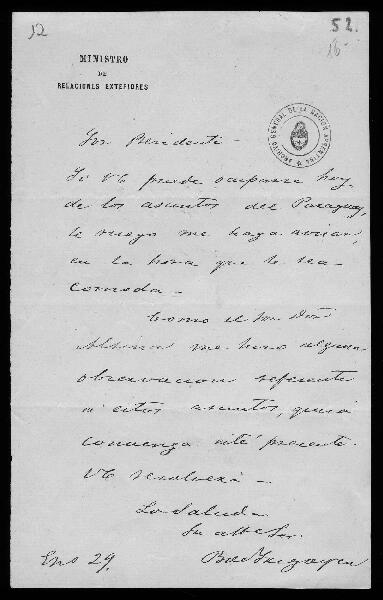 12
52.
16
MINISTRO
DE
RELACIONES EXTERIORES
ARCHIVO GENERAL DE LA NACION ARGENTINA
Sor Presidente -
Si VE puede ocuparse hoy
de los asuntos del Paraguay,
le ruego me haga avisar,
en la hora que le sea
comoda -
Como el Sor Dor
Alsina me hizo alguna
observacion referente
a estos asuntos, quizá
convenga esté presente.
VE resolverá -
Lo saluda
Su atto
Eno 29.
Bdo Irigoyen